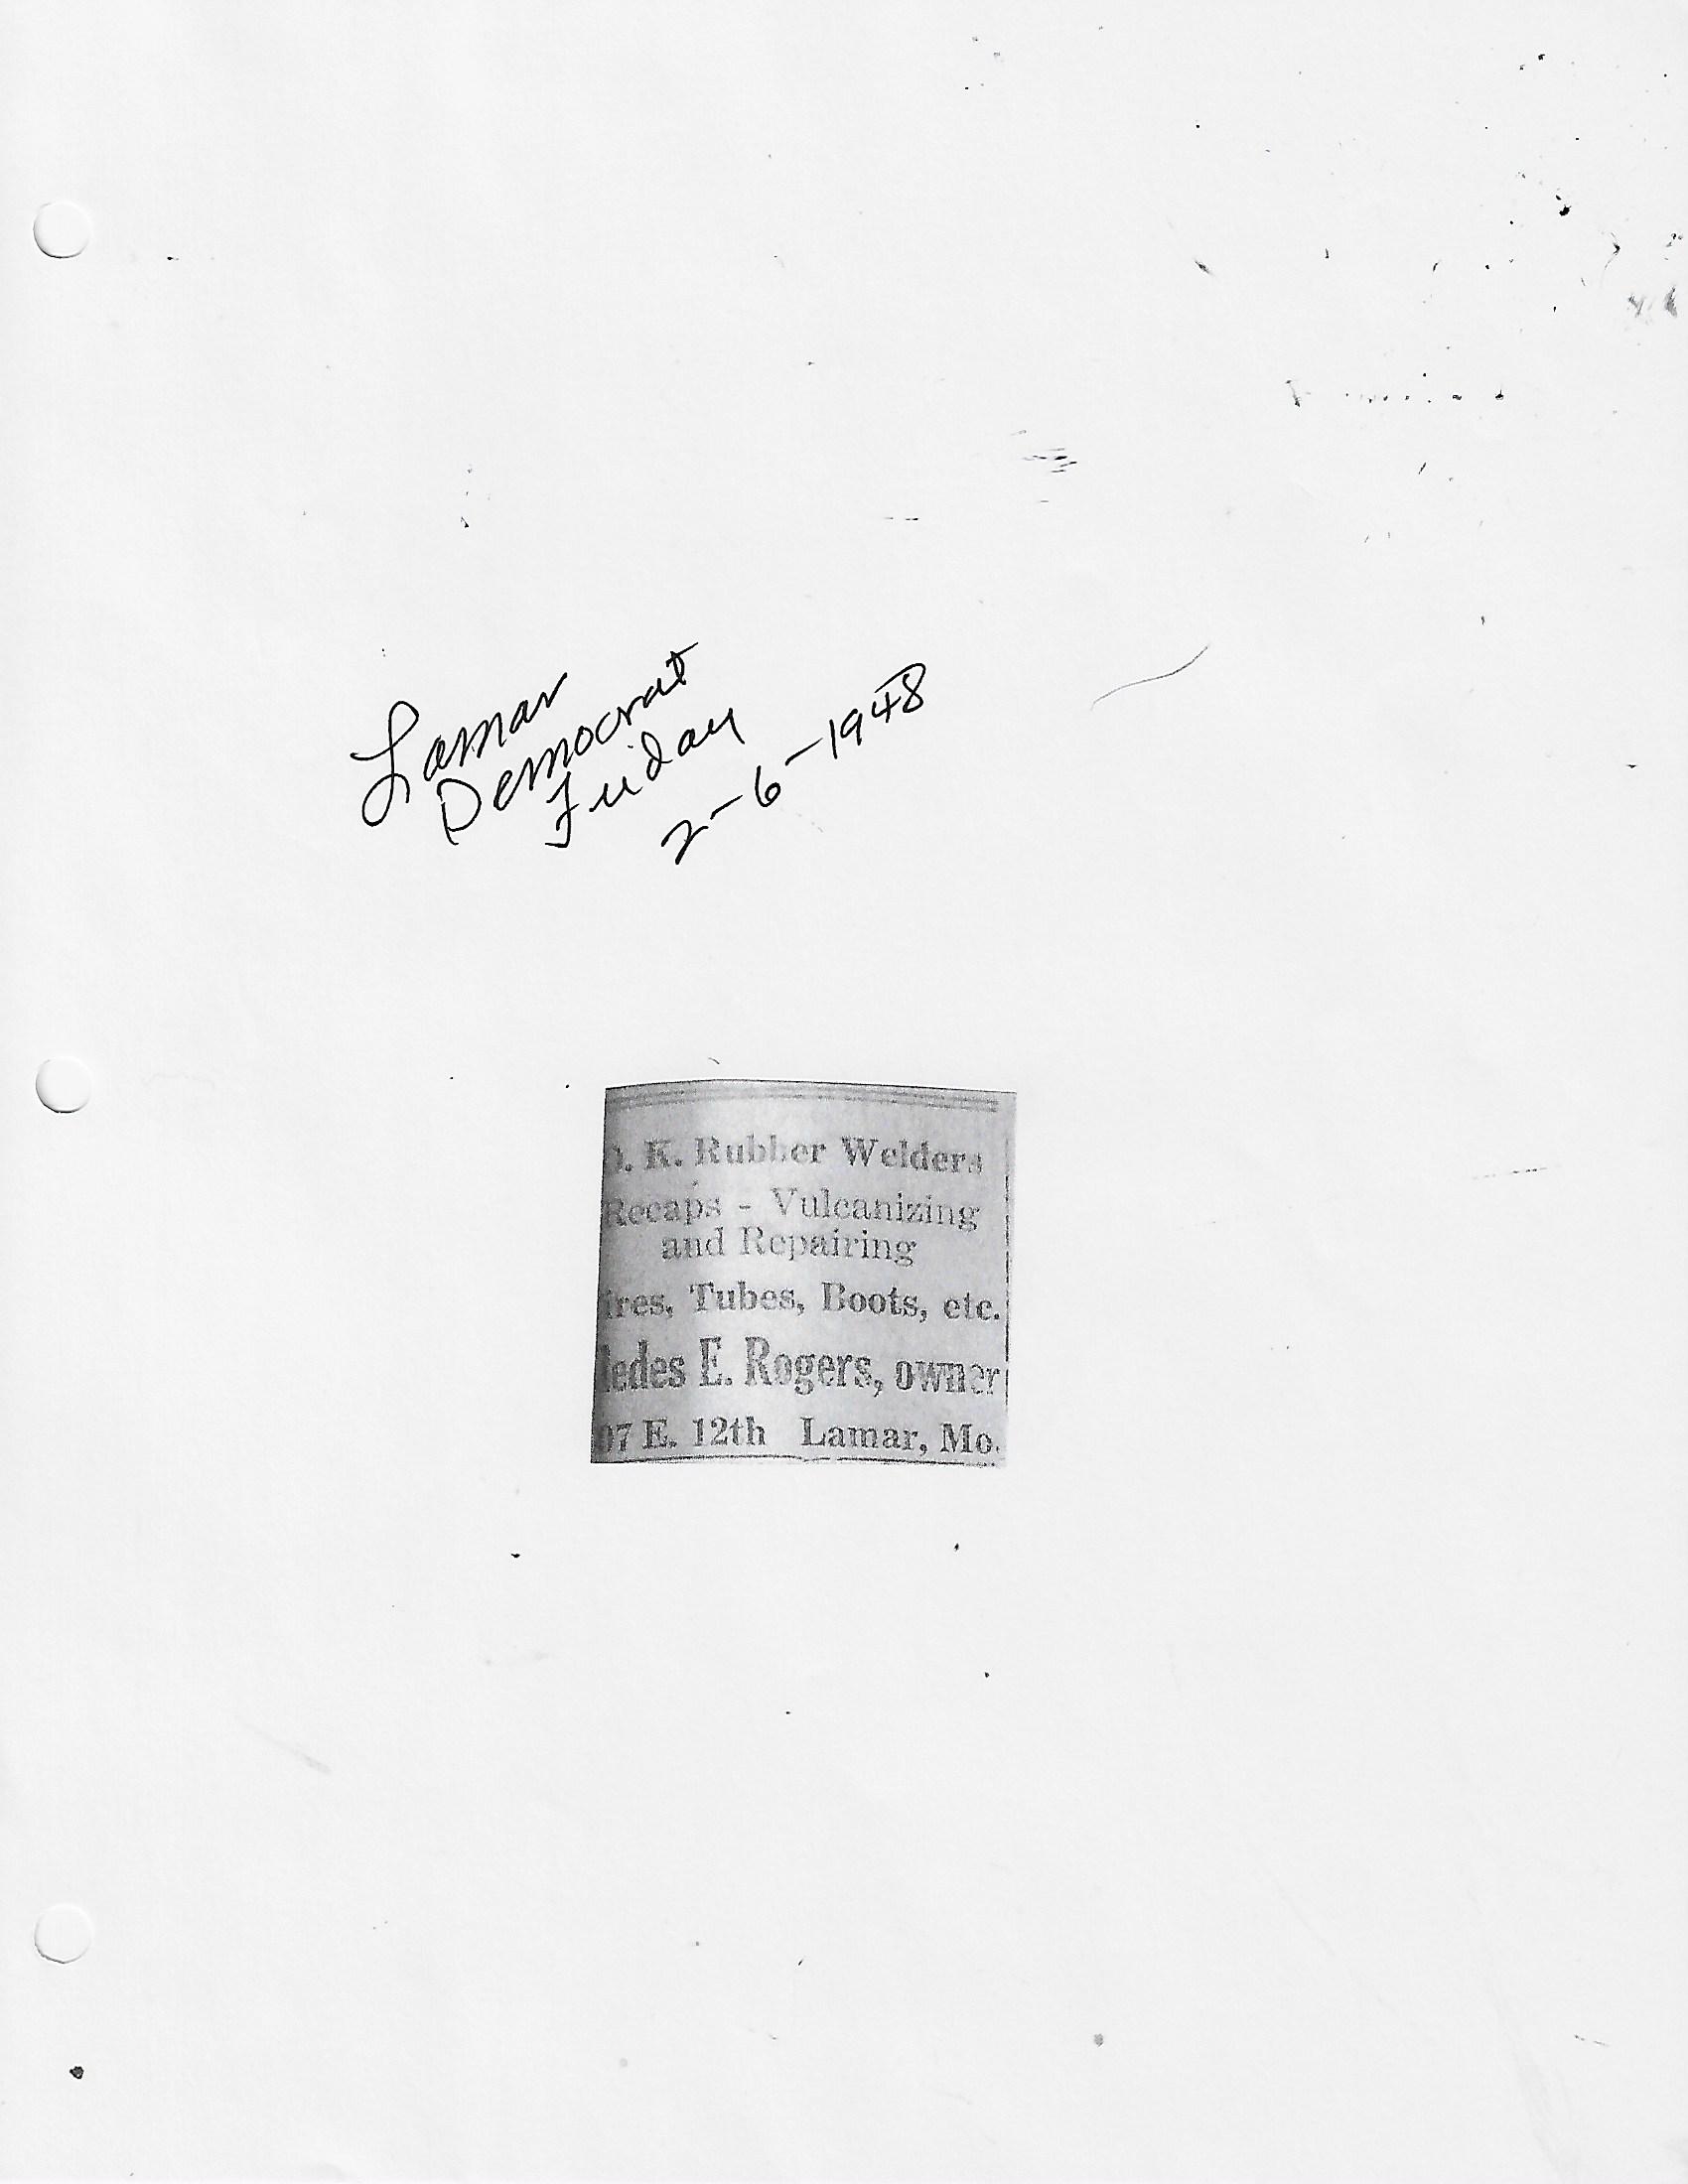 Lamar
Democrat
Friday
2-6-1948
. K. Rubber Welders
Recaps - Vulcanizing
and Repairing
ires, Tubes, Boots, etc.
edes E. Rogers, owner
07 E. 12th Lamar, Mo.